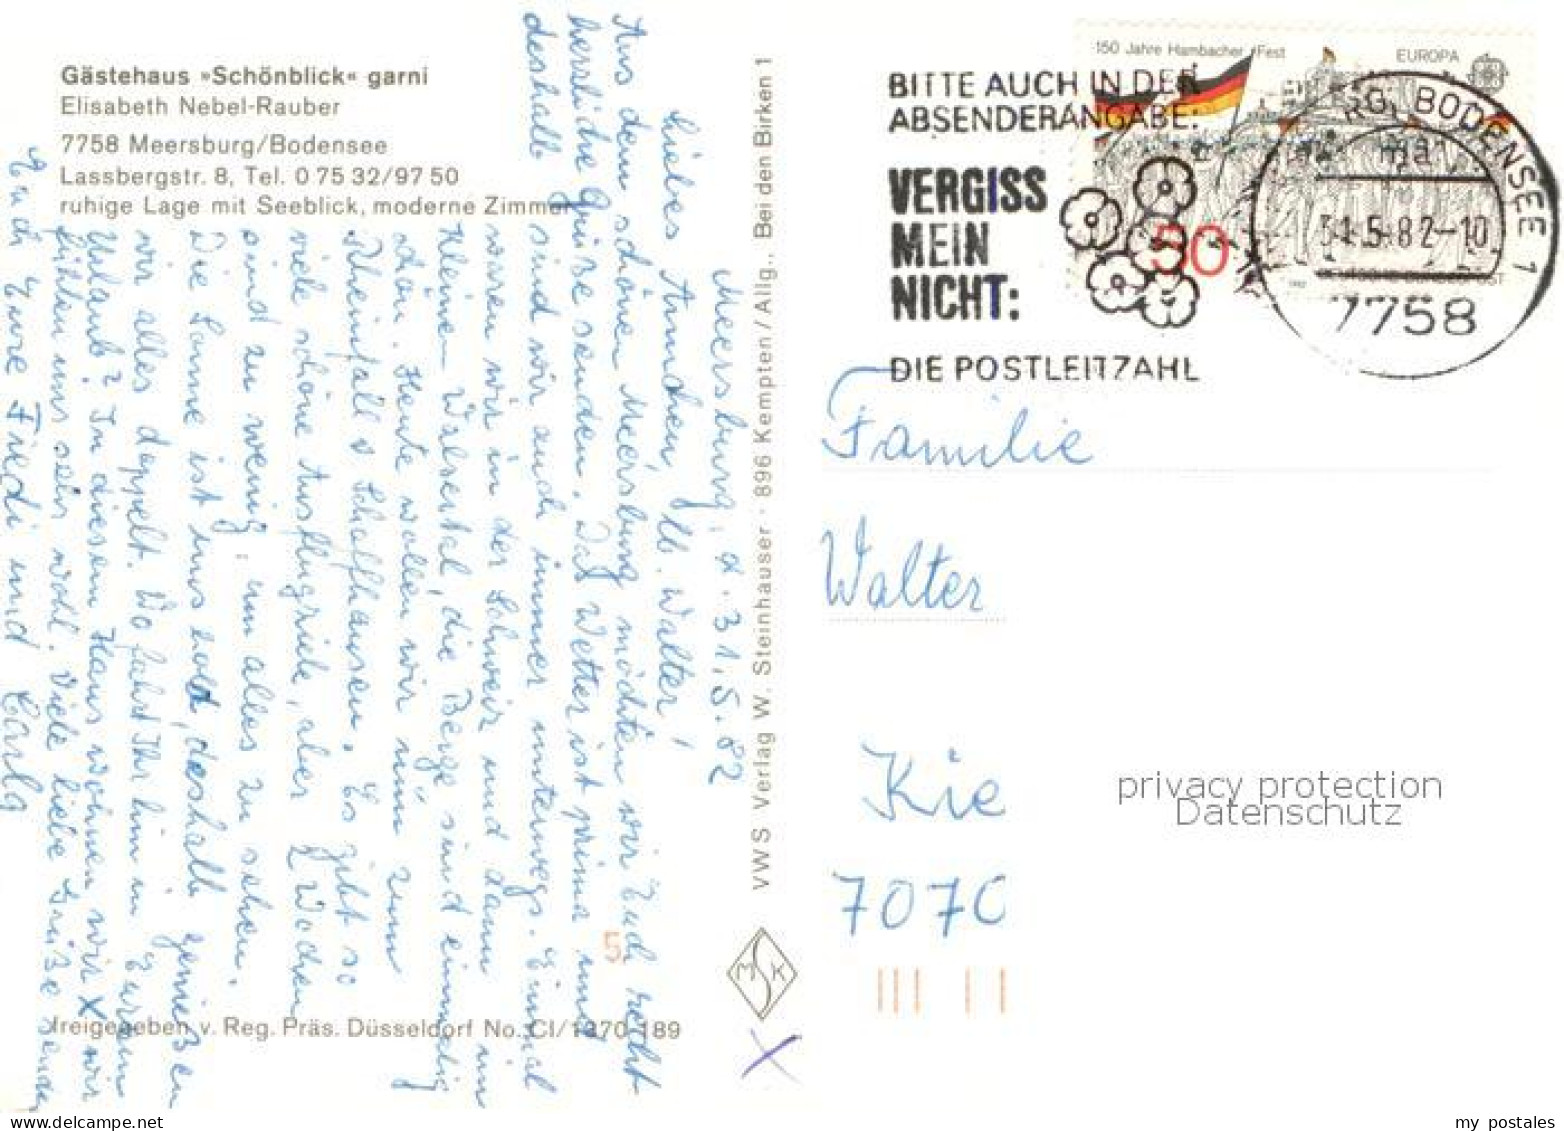 Gästehaus »Schönblick« garni
Elisabeth Nebel-Rauber
7758 Meersburg/Bodensee
Lassbergstr. 8, Tel. 0 75 32/97 50
ruhige Lage mit Seeblick, moderne Zimmer
Meersburg, d. 31.5.82
Liebes Annchen, lb. Walter!
Aus dem schönen Meersburg möchten wir Euch recht
herzliche Grüße senden. Das Wetter ist prima und
deshalb sind wir auch immer unterwegs. Einmal
waren wir in der Schweiz und dann im
Kleinen Walsertal, die Berge sind einmalig
schön. Heute wollen wir nun zum
Rheinfall v Schaffhausen. Es gibt so
viele schöne Ausflugziele, aber 2 Wochen
sind zu wenig, um alles zu sehen.
Die Sonne ist uns hold, deshalb genießen
wir alles doppelt. Wo fahrt Ihr hin in Eurem
Urlaub? In diesem Haus wohnen wir X wir
fühlen uns sehr wohl. Viele liebe Grüße senden
Euch Eure Friedi und Carla
freigegeben v. Reg. Präs. Düsseldorf No. CI/1370 189
5
VWS Verlag W. Steinhauser · 896 Kempten/Allg., Bei den Birken 1
MSK
X
150 Jahre Hambacher Fest
EUROPA
50
BITTE AUCH IN DER
ABSENDERANGABE:
VERGISS
MEIN
NICHT:
DIE POSTLEITZAHL
RG, BODENSEE 1
31.5.82-10
7758
Familie
Walter
Kie
7070
privacy protection
Datenschutz
my postales